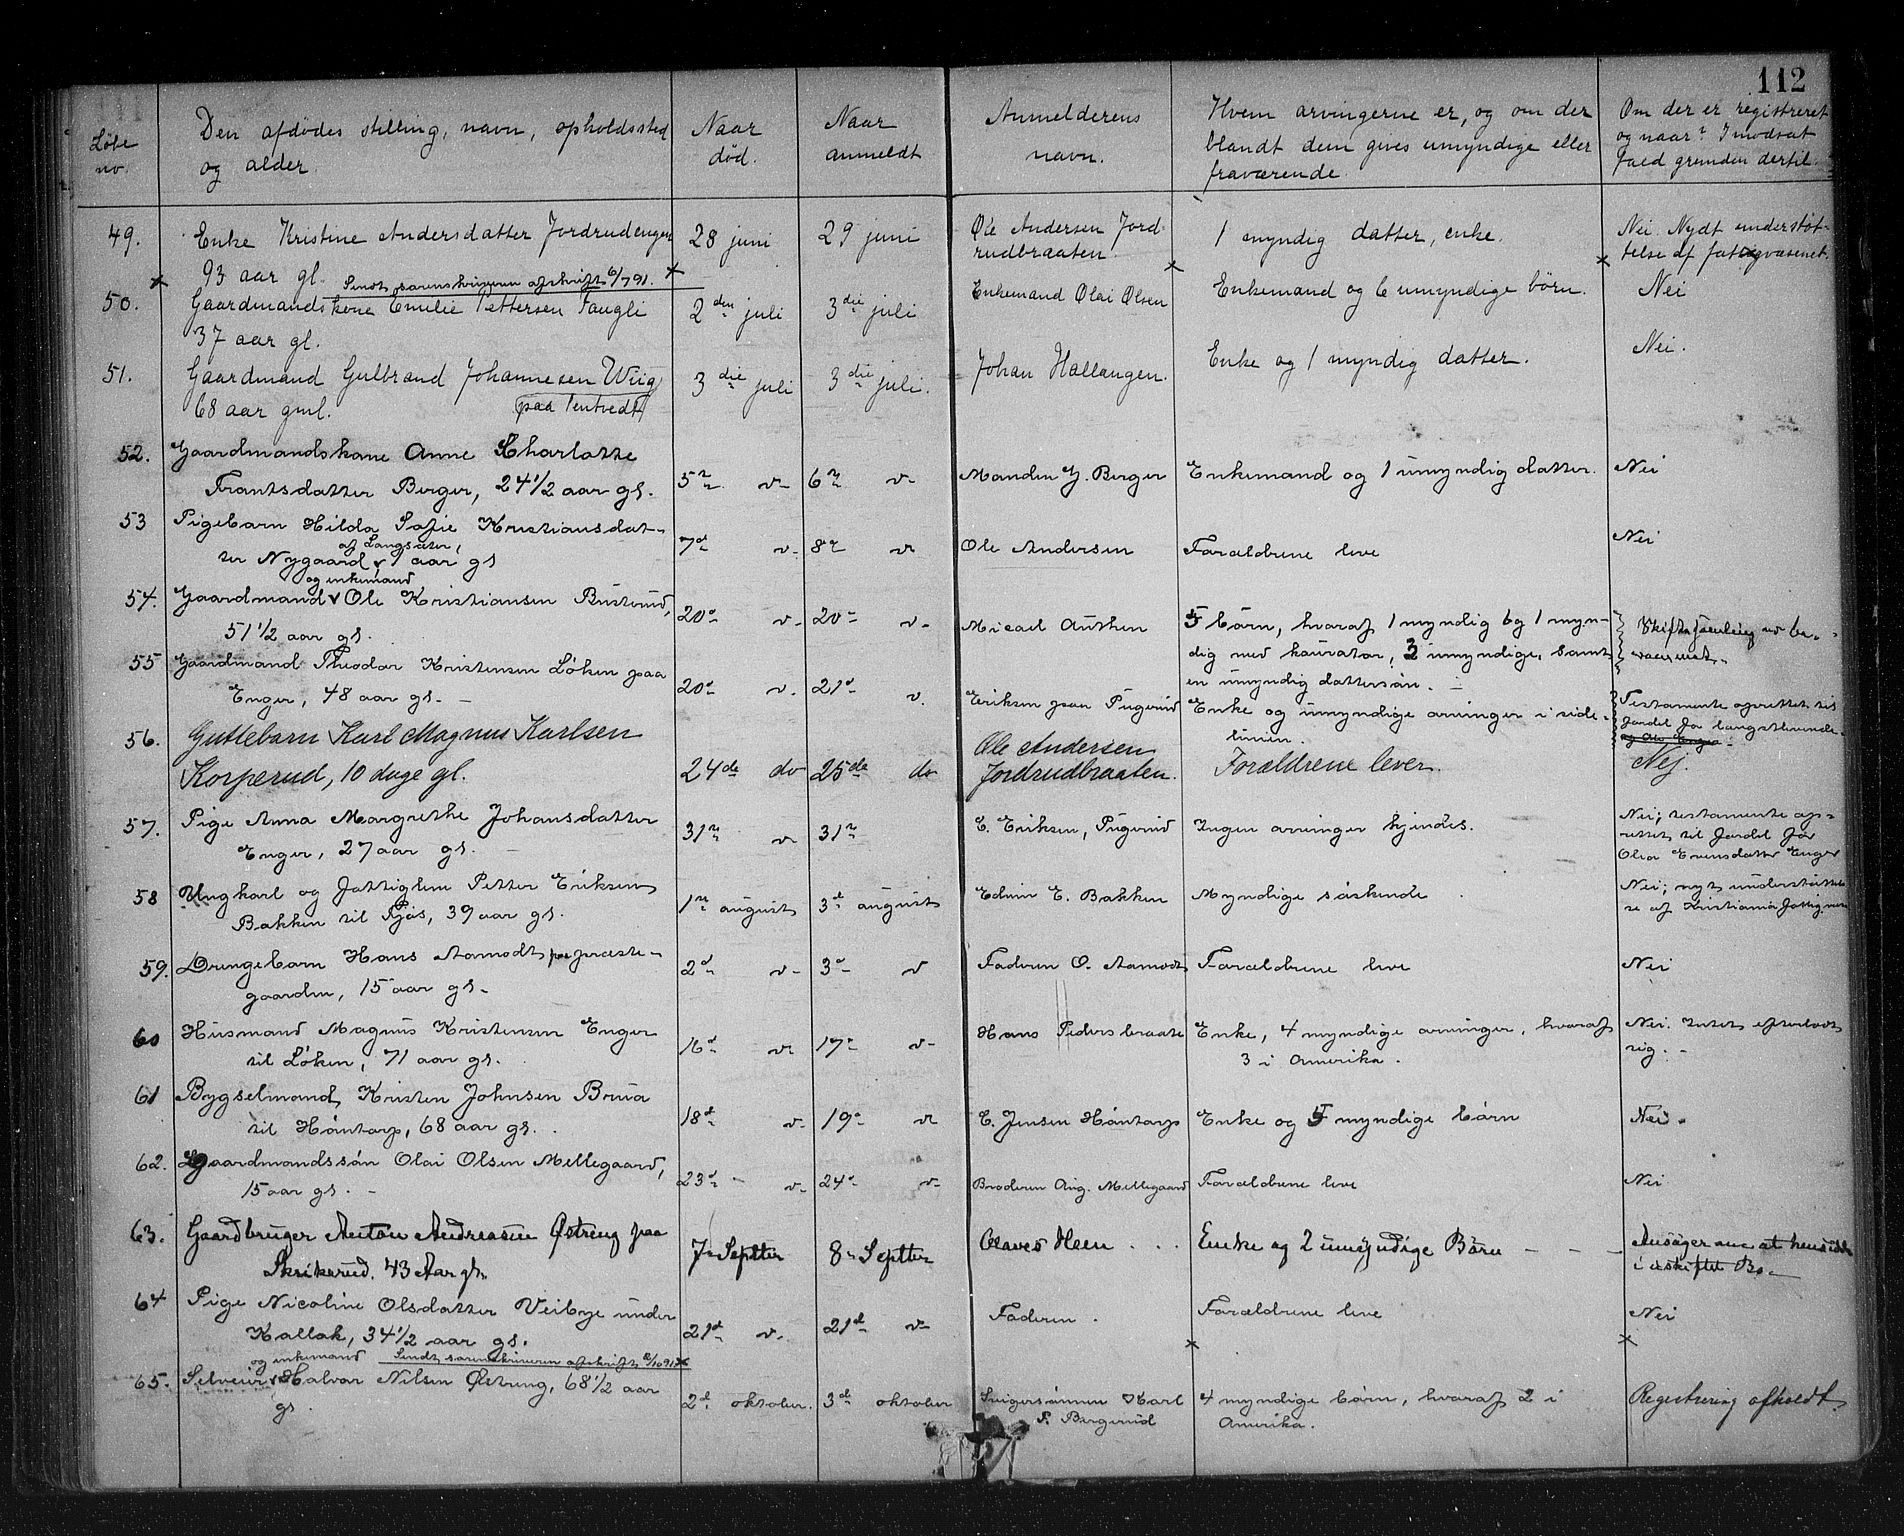 112
Løbe no.
Den afdödes stilling, navn, opholdssted og alder.
Naar död.
Naar anmeldt
Anmelderens navn.
Hvem arvingerne er, og om der blandt dem gives umyndige eller fraværende.
Om der er registreret og naar? I modsat fald grunden dertil.
49. Enke Kristine Andersdatter Jordrudengen 28 juni 29 juni Ole Andersen Jord- 1 myndig datter, enke. Nei. Nydt understøt-
93 aar gl. rudbraaten. telse af fattigvæsenet.
Sendt sorenskriveren afskrift 6/7 91.
50. Gaardmandskone Emilie Pettersen Faugli 2den juli 3die juli Enkemand Olai Olsen Enkemand og 6 umyndige börn. Nei
37 aar gl.
51. Gaardmand Gulbrand Johannesen Wiig 3die juli 3die juli. Johan Hallangen. Enke og 1 myndig datter. Nei.
68 aar gml. paa Tentvedt
52. Gaardmandskone Anne Charlotte
Frantsdatter Berger, 24 1/2 aar gl. 5te 6te Manden J. Berger Enkemand og 1 umyndig datter. Nei
53 Pigebarn Hilda Sofie Kristiansdat-
af Langsæter,
ter Nygaard v 1 aar gl 7d 8de Ole Andersen Forældrene leve Nei
og enkemand
54. Gaardmand v Ole Kristiansen Busterud, 20d 20 Micael Authen 5 börn, hvoraf 1 myndig og 1 myn-
51 1/2 aar gl. dig med kurator, 3 umyndige, samt
en umyndig dattersön.
55 Gaardmand Theodor Kristensen Löken paa 20d 21d Eriksen paa Pugerud Enke og umyndige arvinger i side- Testamente oprettet til
Enger, 48 aar gl. linien. fordel for længstlevende.
56. Guttebarn Karl Magnus Karlsen Ole Andersen
Korperud, 10 dage gl. 24de do 25de do Jordrudbraaten. Forældrene lever. Nej.
57. Pige Anna Margrethe Johansdatter 31te 31te E. Eriksen, Pugerud Ingen arvinger kjendes. Nei; testamente op-
Enger, 27 aar gl. rettet til fordel for
Olea Evensdatter Enger
58 Ungkarl og fattiglem Petter Eriksen 1te august 3d august Edvin E. Bakken Myndige söskende Nei; nyt understöttel-
Bakken til Pjös, 39 aar gl. se af Kristiania fattigv.
59. Drengebarn Hans Aamodt paa præste- 2d 3d Faderen O. Aamodt Forældrene leve Nei
gaarden, 15 aar gl.
60 Husmand Magnus Kristensen Enger 16d 17 Hans Pedersbraate Enke, 4 myndige arvinger, hvoraf Nei. Intet efterladt
til Löken, 71 aar gl. 3 i Amerika. sig.
61 Bygselmand Kristen Johnsen Brua 18d 19 C. Jensen Höntorp Enke og 5 myndige börn Nei.
til Höntorp, 68 aar gl.
62. Gaardmandssön Olai Olsen Mellegaard, 23d 24d Broderen Aug. Mellegaard Forældrene leve Nei
15 aar gl.
63. Gaardbruger Anton Andreasen Østreng paa 7 Septbr 8 Septbr Olaves Heen Enke og 2 umyndige Børn Ansöger om at hensidde
Skrikerud. 43 Aar gl. i uskiftet Bo.
64 Pige Nicoline Olsdatter Veibye under 21d 21d Faderen. Forældrene leve Nei
Kallak, 34 1/2 aar gl.
og enkemand Sendt sorenskriveren afskrift 10 91
65. Selveier v Halvor Nilsen Østreng, 68 1/2 aar 2d oktober. 3d oktober Svigersönnen Karl 4 myndige börn, hvoraf 2 i Registrering afholdt.
gl. Bergerud Amerika.